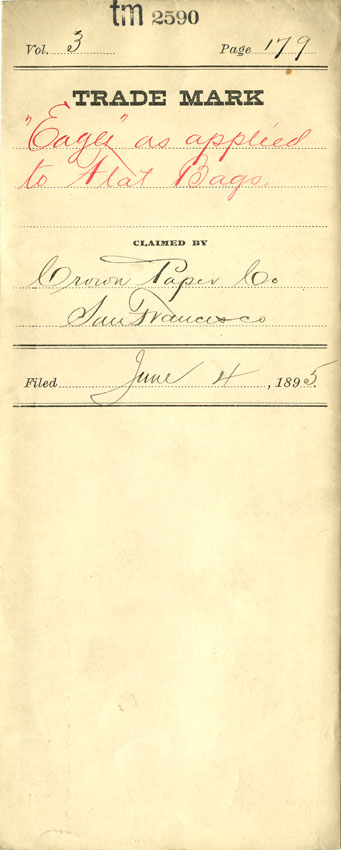 tm 2590
Vol. 3 Page 179
TRADE MARK
"Eagle" as applied
to Flat Bags.
CLAIMED BY
Crown Paper Co
San Francisco
Filed June 4, 1895.